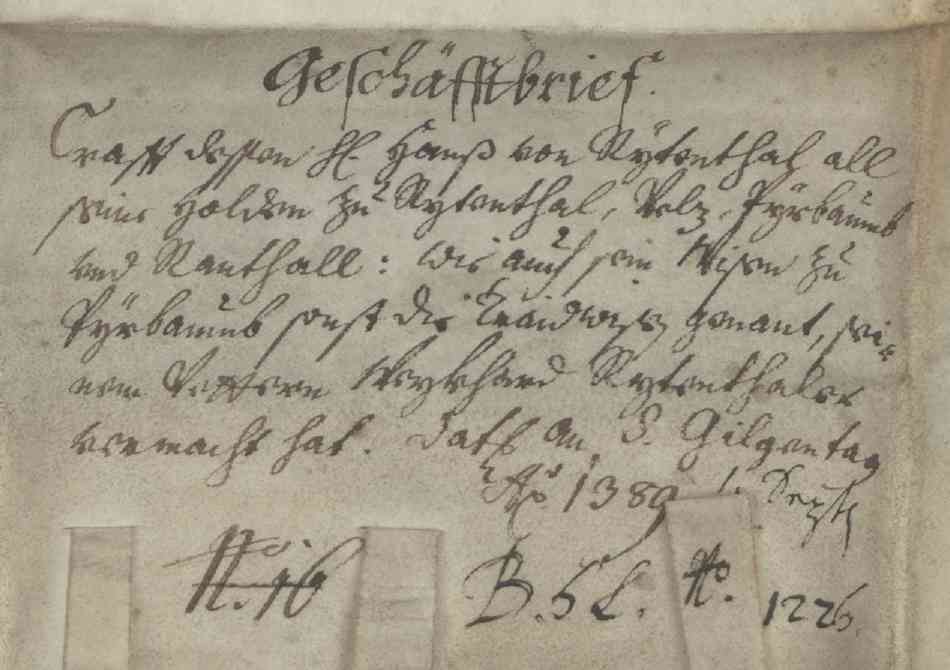 Geschäfftbrief.
Crafft dessen H. Hannß von Rÿtenthal all
seine Holden zu Rÿtenthal, Velz, Pÿrbaumb
und Ranthall: wie auch sein Wisen zu
Pÿrbaumb sonst die Traidwisz genant, sei=
nem Vettern Weykhard Rytenthaler
vermacht hat. Dat. an S. Gilgentag
Ao 1389 1. Sept.
N. 16 B. 52. No. 1226.